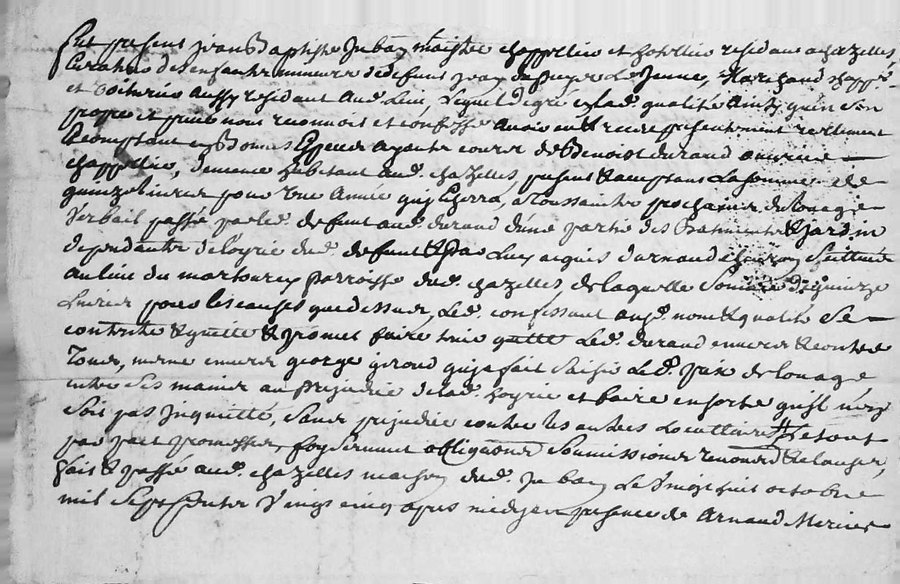 fut present jean Baptiste Juban maistre chappellier et hotellier residant a chazelles,
Curateur des enfants mineurs de defunt jean dupuy Le Jeune, Marchand chapp.
et aussy residant aud. Lieu, Lequel de gré es lad. qualité Ainsy qu'en son
propre et privé nom reconnoit et confesse avoir eu & receu presentement reellement
Comptant en bonnes Especes ayants cours de Benoist durand ouvrier
chappellier, demeurant habitant aud. chazelles, present & acceptant La somme de
quinze livres pour une Année quj Escherra, a Toussaints prochain du louage
Verbail passé par led. defunt aud. durand d'une partie des Batiments & jardin
dependants de loyrie dud. defunt & par Luy acquis d'arnaud Scittuée
au lieu du martourey parroisse dud. chazelles de laquelle Somme de quinze
Livres pour les causes que dessus, Led. confessant aux d. noms & qualité Se
contente & quitte & promet faire tenir quitte Led. durand envers & contre
Tous, meme envers george giroud quj a fait Saisir Led. prix de louage
entre Ses mains au prejudice de lad. loyrie et faire en sorte qu'il n'en
Soit pas Inquietté, Sans prejudice contre les autres Locattaires & Le tout
par pact promesses, foy Serment obligations Soumissions renonc. & clauses,
fait & passé aud. chazelles maison dud. Juban Le Vingt huit octobre
mil Sept cents Vingt cinq apres midy en presence de Arnaud Mercier